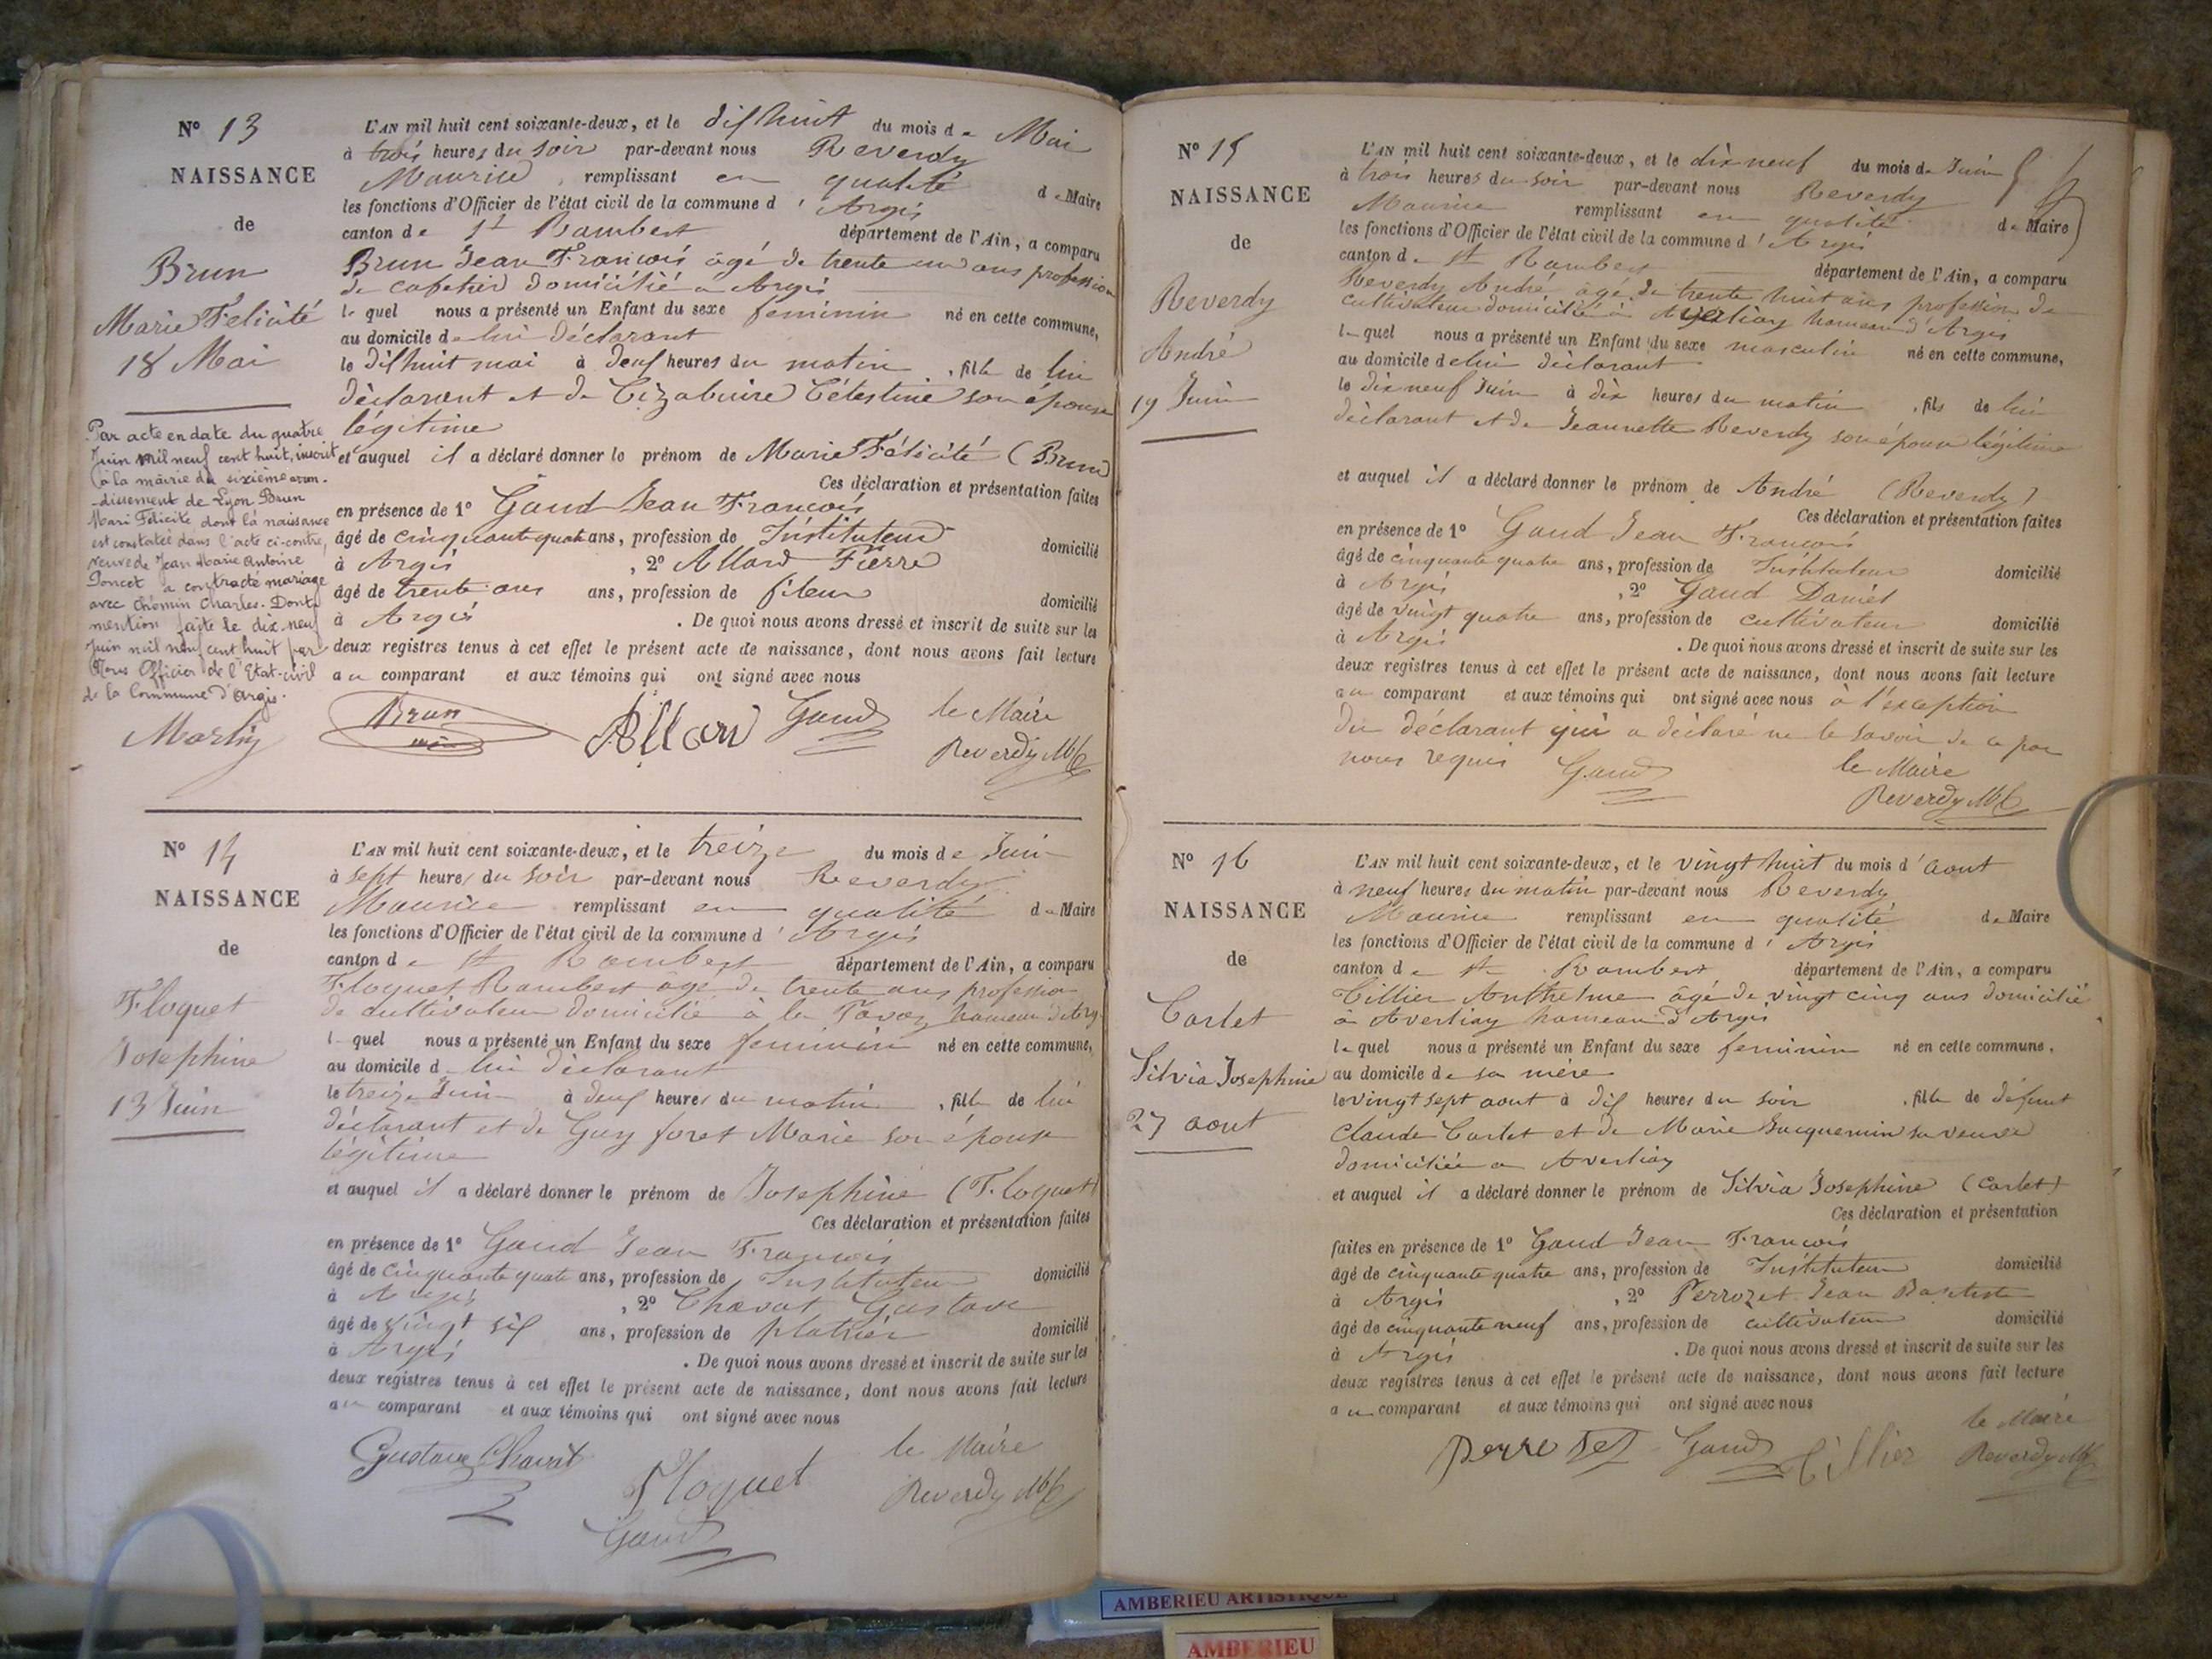 Nº 13
NAISSANCE
de
Brun
Marie Felicité
18 Mai
Par acte en date du quatre
Juin mil neuf cent huit, inscrit
à la mairie du sixième arron-
-dissement de Lyon Brun
Mari Félicité dont la naissance
est constatée dans l'acte ci-contre,
veuve de Jean Marie Antoine
Poncet a contracté mariage
avec Chemin Charles. Dont
mention faite le dix-neuf
Juin mil neuf cent huit par
Nous Officier de l'Etat-civil
de la Commune d'Argis.
L'AN mil huit cent soixante-deux, et le dishuit du mois de Mai
à trois heures du soir par-devant nous Reverdy
Maurice remplissant en qualité de Maire
les fonctions d'Officier de l'état civil de la commune d'Argis
canton de St Rambert département de l'Ain, a comparu
Brun Jean Francois âgé de trente un ans profession
de cafetier domicilié a Argis
lequel nous a présenté un Enfant du sexe feminin né en cette commune,
au domicile de lui déclarant
le dishuit mai à deus heures du matin, fille de lui
déclarant et de Célestine son épouse
légitime
et auquel il a déclaré donner le prénom de Marie Félicité (Brun)
Ces déclaration et présentation faites
en présence de 1º Gaud Jean Francois
âgé de cinquante quatre ans, profession de Instituteur domicilié
à Argis, 2º Allard Pierre
âgé de trente ans ans, profession de fileur domicilié
à Argis. De quoi nous avons dressé et inscrit de suite sur les
deux registres tenus à cet effet le présent acte de naissance, dont nous avons fait lecture
au comparant et aux témoins qui ont signé avec nous
Brun Allard Gaud le Maire
Reverdy
Nº 14
NAISSANCE
de
Floquet
Josephine
13 Juin
L'AN mil huit cent soixante-deux, et le treize du mois de Juin
à sept heures du soir par-devant nous Reverdy
Maurice remplissant en qualité de Maire
les fonctions d'Officier de l'état civil de la commune d'Argis
canton de St Rambert département de l'Ain, a comparu
Floquet Rambert âgé de trente ans profession
de cultivateur domicilié à hameau
lequel nous a présenté un Enfant du sexe feminin né en cette commune,
au domicile de lui déclarant
le treize Juin à deus heures du matin, fille de lui
déclarant et de Guy foret Marie son épouse
légitime
et auquel il a déclaré donner le prénom de Josephine (Floquet)
Ces déclaration et présentation faites
en présence de 1º Gaud Jean Francois
âgé de cinquante quatre ans, profession de Instituteur domicilié
à Argis, 2º Chavat Gustave
âgé de vingt sis ans, profession de platrier domicilié
à Argis. De quoi nous avons dressé et inscrit de suite sur les
deux registres tenus à cet effet le présent acte de naissance, dont nous avons fait lecture
au comparant et aux témoins qui ont signé avec nous
Gustave Chavat Floquet le Maire
Reverdy
Gaud
Nº 15
NAISSANCE
de
Reverdy
André
19 Juin
L'AN mil huit cent soixante-deux, et le dix neuf du mois de Juin
à trois heures du soir par-devant nous Reverdy
Maurice remplissant en qualité de Maire
les fonctions d'Officier de l'état civil de la commune d'Argis
canton de St Rambert département de l'Ain, a comparu
Reverdy André âgé de trente huit ans profession de
cultivateur domicilié à hameau d'Argis
lequel nous a présenté un Enfant du sexe masculin né en cette commune,
au domicile de lui déclarant
le dix neuf Juin à dix heures du matin, fils de lui
déclarant et de Jeannette Reverdy son épouse légitime
et auquel il a déclaré donner le prénom de André (Reverdy)
Ces déclaration et présentation faites
en présence de 1º Gaud Jean Francois
âgé de cinquante quatre ans, profession de Instituteur domicilié
à Argis, 2º Gaud Daniel
âgé de vingt quatre ans, profession de cultivateur domicilié
à Argis. De quoi nous avons dressé et inscrit de suite sur les
deux registres tenus à cet effet le présent acte de naissance, dont nous avons fait lecture
au comparant et aux témoins qui ont signé avec nous à l'exception
du déclarant qui a déclaré ne le savoir de ce par
nous requis Gaud le Maire
Reverdy
Nº 16
NAISSANCE
de
Carlet
Silvia Josephine
27 aout
L'AN mil huit cent soixante-deux, et le vingt huit du mois d'aout
à neuf heures du matin par-devant nous Reverdy
Maurice remplissant en qualité de Maire
les fonctions d'Officier de l'état civil de la commune d'Argis
canton de St Rambert département de l'Ain, a comparu
Tillier Anthelme âgé de vingt cinq ans domicilié
à Averliay hameau d'Argis
lequel nous a présenté un Enfant du sexe feminin né en cette commune,
au domicile de sa mère
le vingt sept aout à dis heures du soir, fille de défunt
Claude Carlet et de Marie Jacquemin sa veuve
domiciliée a Averliay
et auquel il a déclaré donner le prénom de Silvia Josephine (Carlet)
Ces déclaration et présentation
faites en présence de 1º Gaud Jean Francois
âgé de cinquante quatre ans, profession de Instituteur domicilié
à Argis, 2º Perrozet Jean Baptiste
âgé de cinquante neuf ans, profession de cultivateur domicilié
à Argis. De quoi nous avons dressé et inscrit de suite sur les
deux registres tenus à cet effet le présent acte de naissance, dont nous avons fait lecture
au comparant et aux témoins qui ont signé avec nous
Perrozet Gaud Tillier le Maire
Reverdy
AMBERIEU ARTISTIQUE
AMBERIEU